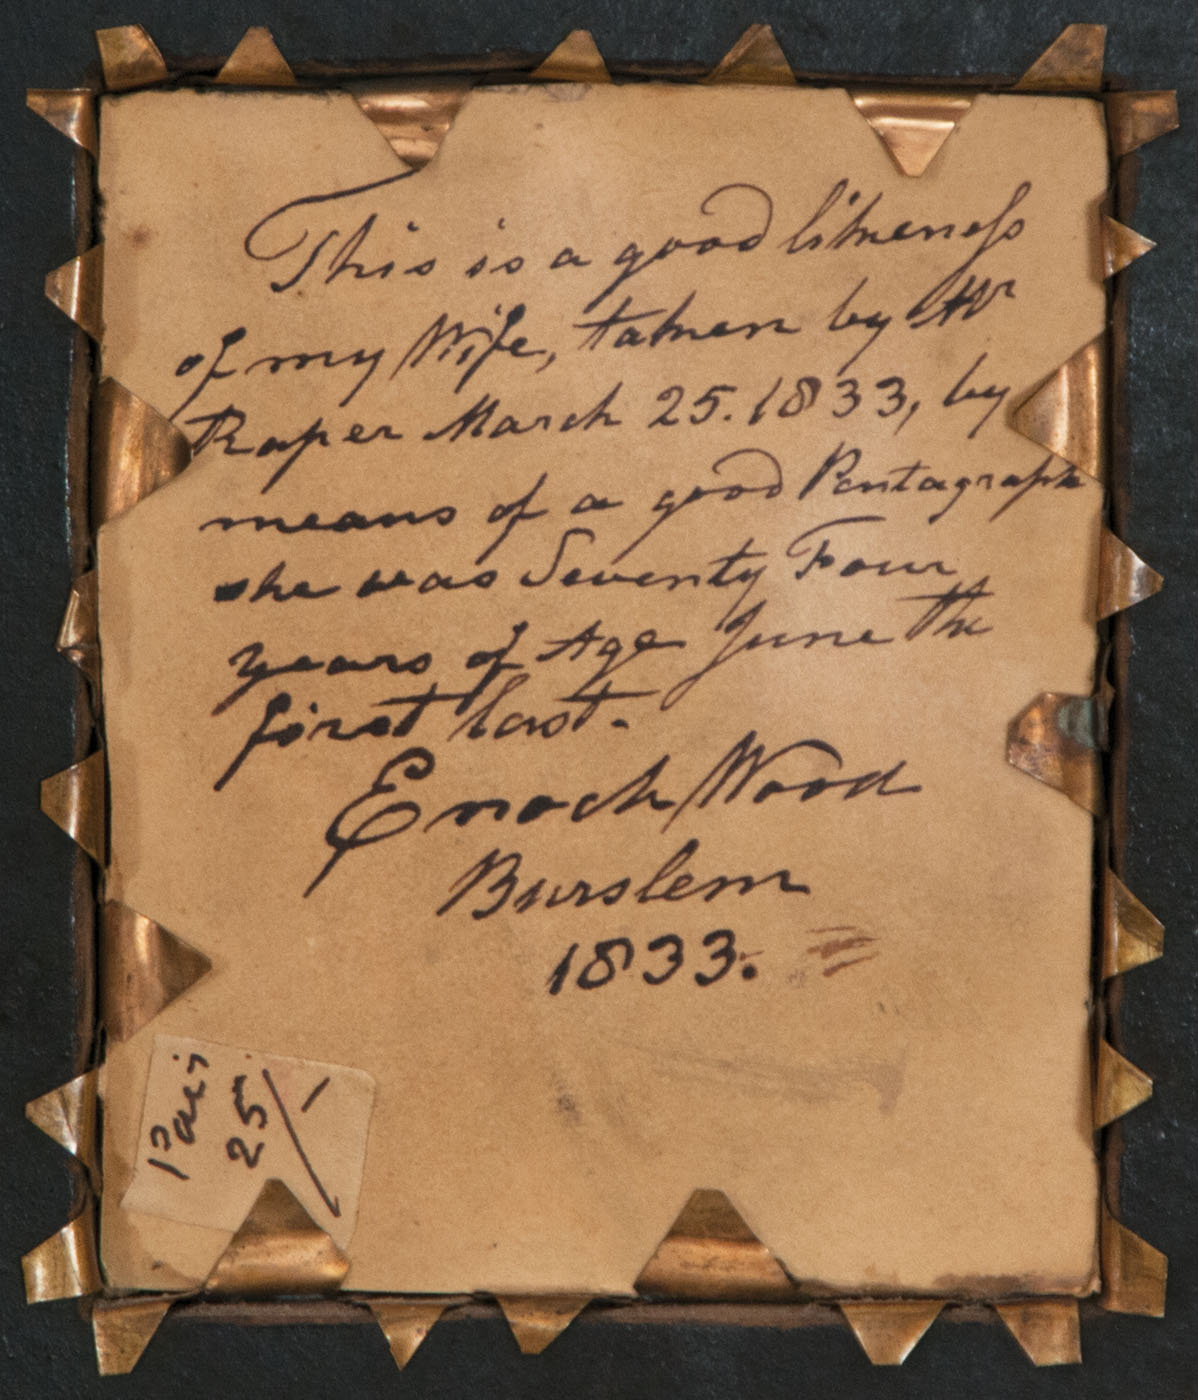 This is a good likeness
of my Wife, taken by Mr
Raper March 25. 1833, by
means of a good Pentagraph
she was Seventy Four
years of Age June the
first last.
Enoch Wood
Burslem
1833.
Pair
25/-